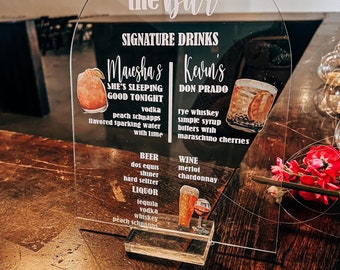 the Bar
SIGNATURE DRINKS
Mausha's
SHE'S SLEEPING
GOOD TONIGHT
vodka
peach schnapps
flavored sparking water
with lime
Kevin's
DON PRADO
rye whiskey
simple syrup
butters with
maraschino cherries
BEER
dos equis
shiner
hard seltzer
LIQUOR
tequila
vodka
whiskey
peach schnapps
WINE
merlot
chardonnay